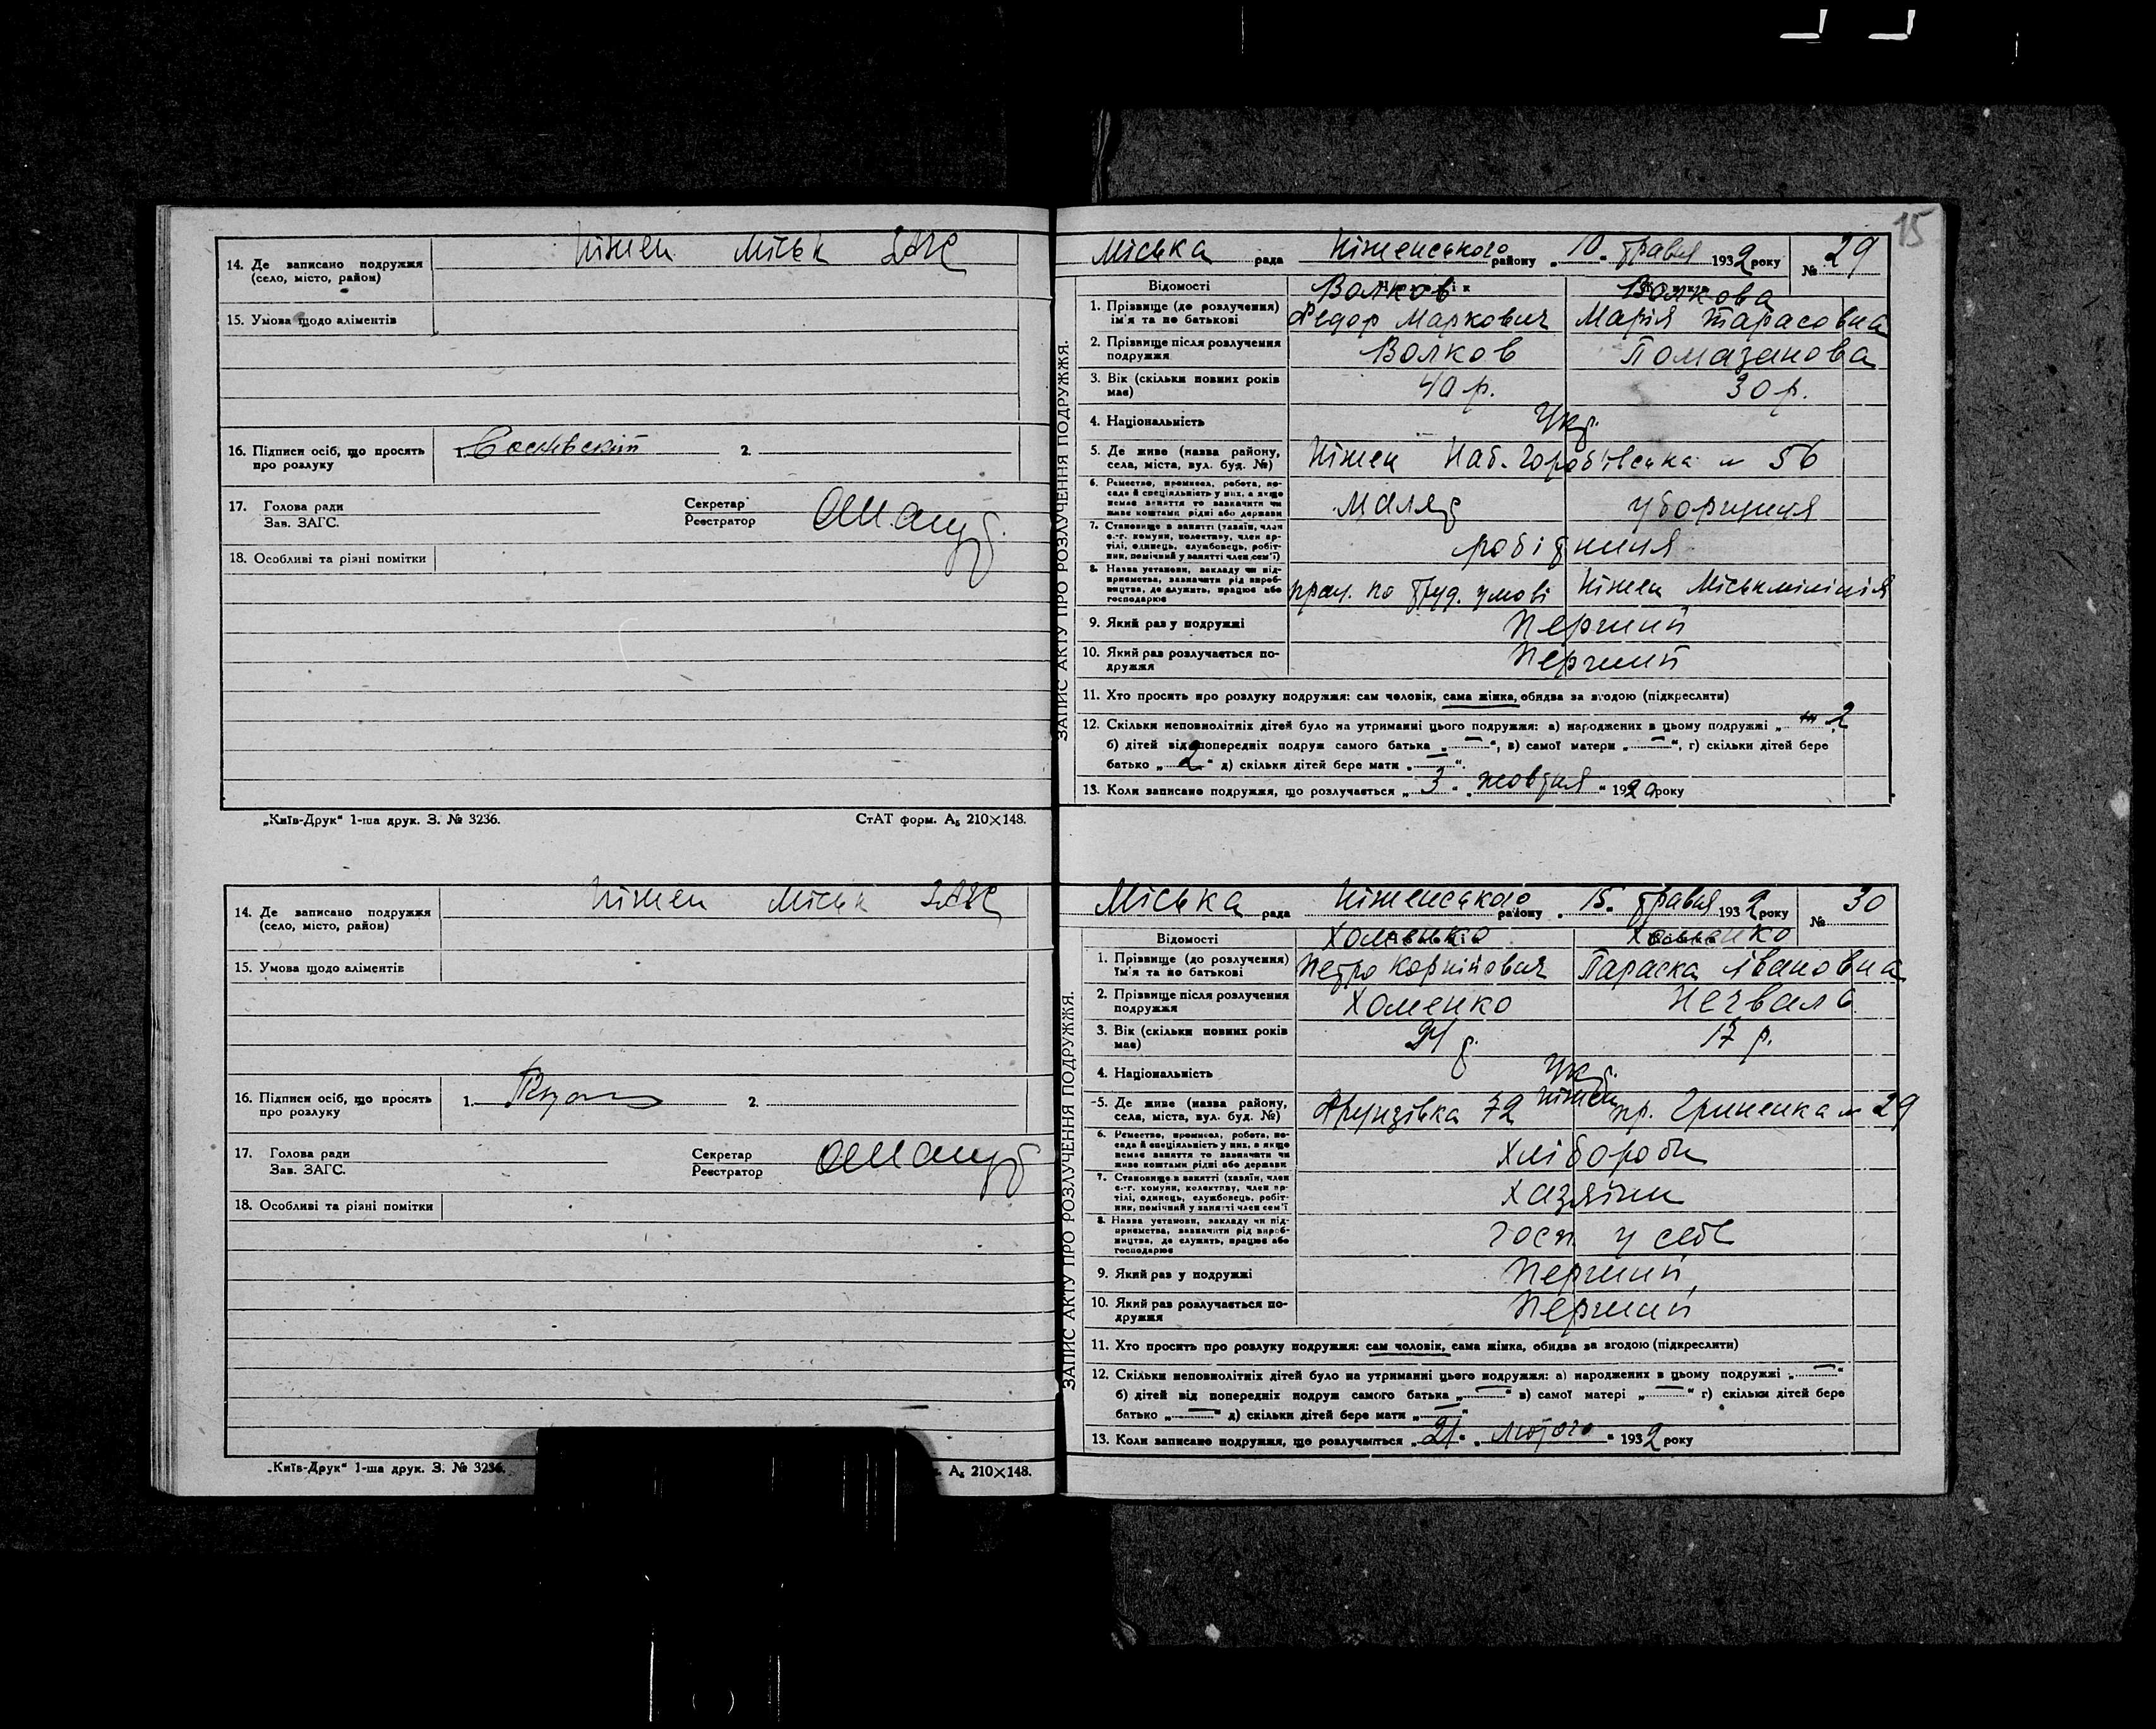 14. Де записано подружжя Ніжен Міськ ЗАГС
(село, місто, район)
15. Умова щодо аліментів
16. Підписи осіб, що просять 1. 2.
про розлуку
17. Голова ради Секретар
Зав. ЗАГС. Реєстратор
18. Особливі та різні помітки
„Київ-Друк“ 1-ша друк. З. № 3236. СтАТ форм. А₅ 210×148.
14. Де записано подружжя Ніжен Міськ ЗАГС
(село, місто, район)
15. Умова щодо аліментів
16. Підписи осіб, що просять 1. 2.
про розлуку
17. Голова ради Секретар
Зав. ЗАГС. Реєстратор
18. Особливі та різні помітки
„Київ-Друк“ 1-ша друк. З. № 3236. А₅ 210×148.
15
ЗАПИС АКТУ ПРО РОЗЛУЧЕННЯ ПОДРУЖЖЯ.
Міська рада Ніженського району „10“ травня 1932 року № 29
Відомості Волков Волкова
1. Прізвище (до розлучення) Федор Маркович Марія Тарасовна
ім'я та по батькові
2. Прізвище після розлучення Волков Помазанова
подружжя
3. Вік (скільки повних років 40 р. 30 р.
має)
4. Національність Укр.
5. Де живе (назва району, Ніжен Наб. Горобієвська № 56
села, міста, вул. буд. №)
6. Ремество, промисел, робота, по-
сада й спеціяльність у них, а якщо Маляр уборщиця
немає заняття то зазначити чи
живе коштами рідні або держави
7. Становище в занятті (хазяїн, член
с.-г. комуни, колективу, член ар-
тілі, одинець, службовець, робіт- робітниця
ник, помічний у занятті член сем'ї)
8. Назва установи, закладу чи під-
приємства, зазначити рід вироб- прац. по труд. умові Ніжен Міськміліція
ництва, де служить, працює або
господарює
9. Який раз у подружжі Перший
10. Який раз розлучається по- Перший
дружжя
11. Хто просить про розлуку подружжя: сам чоловік, сама жінка, обидва за згодою (підкреслити)
12. Скільки неповнолітніх дітей було на утриманні цього подружжя: а) народжених в цьому подружжі „2
б) дітей від попередніх подруж самого батька „—“, в) самої матери „—“, г) скільки дітей бере
батько „2“ д) скільки дітей бере мати „—“.
13. Коли записано подружжя, що розлучається „3“ „жовтня“ 1920 року
ЗАПИС АКТУ ПРО РОЗЛУЧЕННЯ ПОДРУЖЖЯ.
Міська рада Ніженського району „15“ травня 1932 року № 30
Відомості Хоменко Хоменко
1. Прізвище (до розлучення) Петро Корнійович Параска Івановна
ім'я та по батькові
2. Прізвище після розлучення Хоменко
подружжя
3. Вік (скільки повних років 17 р.
має)
4. Національність Укр.
5. Де живе (назва району, Фрунзівка 72 Ніжен пр. Гриненка № 29
села, міста, вул. буд. №)
6. Ремество, промисел, робота, по-
сада й спеціяльність у них, а якщо Хлібороби
немає заняття то зазначити чи
живе коштами рідні або держави
7. Становище в занятті (хазяїн, член
с.-г. комуни, колективу, член ар- Хазяїни
тілі, одинець, службовець, робіт-
ник, помічний у занятті член сем'ї
8. Назва установи, закладу чи під-
приємства, зазначити рід вироб- госп. у себе
ництва, де служить, працює або
господарює
9. Який раз у подружжі Перший
10. Який раз розлучається по- Перший
дружжя
11. Хто просить про розлуку подружжя: сам чоловік, сама жінка, обидва за згодою (підкреслити)
12. Скільки неповнолітніх дітей було на утриманні цього подружжя: а) народжених в цьому подружжі „—“
б) дітей від попередніх подруж самого батька „—“ в) самої матері „—“ г) скільки дітей бере
батько „—“ д) скільки дітей бере мати „—“
13. Коли записано подружжя, що розлучається „21“ „лютого“ 1932 року